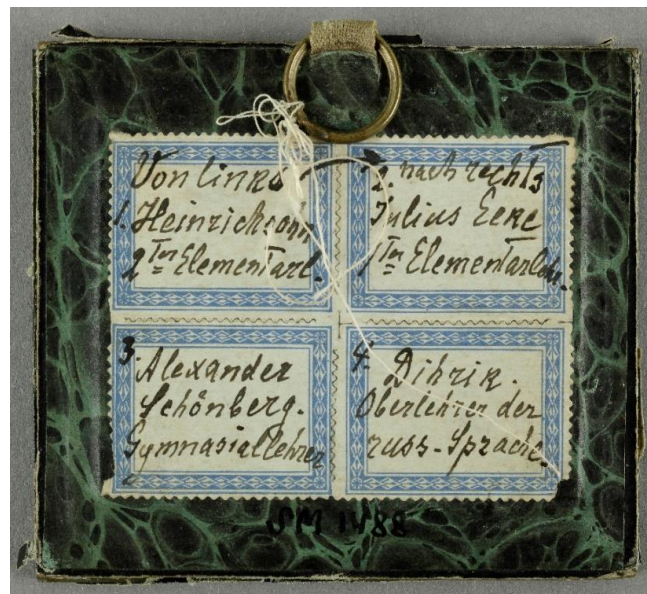 Von links
1. Heinrichsohn
2ter Elementarl.
2. nach rechts
Julius Ecke
1ter Elementarlehr.
3.
Alexander
Schönberg.
Gymnasiallehrer
4. Dihrik.
Oberlehrer der
russ-Sprache.
SM 1488